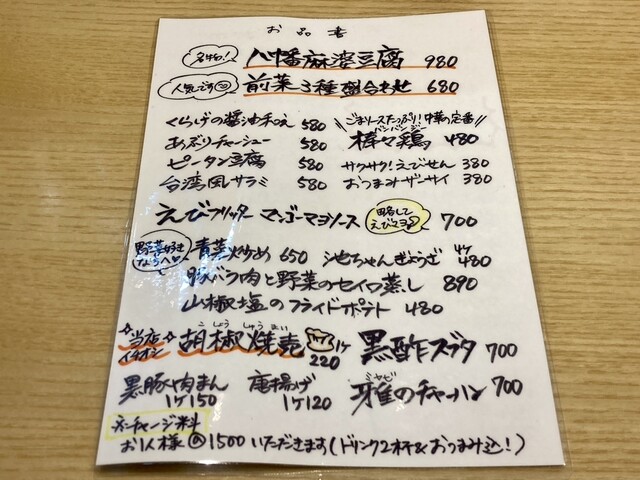 お品書
名物!
八幡麻婆豆腐 980
人気です
前菜3種盛合わせ 680
くらげの醤油和え 580
あぶりチャーシュー 580
ピータン豆腐 580
台湾風サラミ 580
ごまソースたっぷり!中華の定番
バンバンジー
棒々鶏 480
サクサク!えびせん 380
おつまみザーサイ 380
えびフリッター マンゴーマヨソース
略してえびマヨ
700
野菜好きならへ
青菜炒め 650
池ちゃんぎょうざ 4ケ 480
豚バラ肉と野菜のセイロ蒸し 890
山椒塩のフライドポテト 480
当店イチオシ
こしょうしゅうまい
胡椒焼売 1ケ 220
黒酢ズブタ 700
黒豚肉まん 1ケ150
唐揚げ 1ケ120
ミヤビ
雅のチャーハン 700
ネチャージ料
お1人様 1500 いただきます(ドリンク2杯&おつまみ込!)